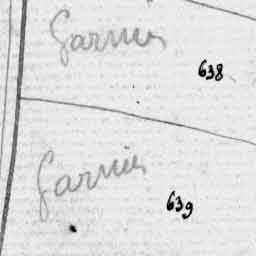 Garnier
638
Garnier
639